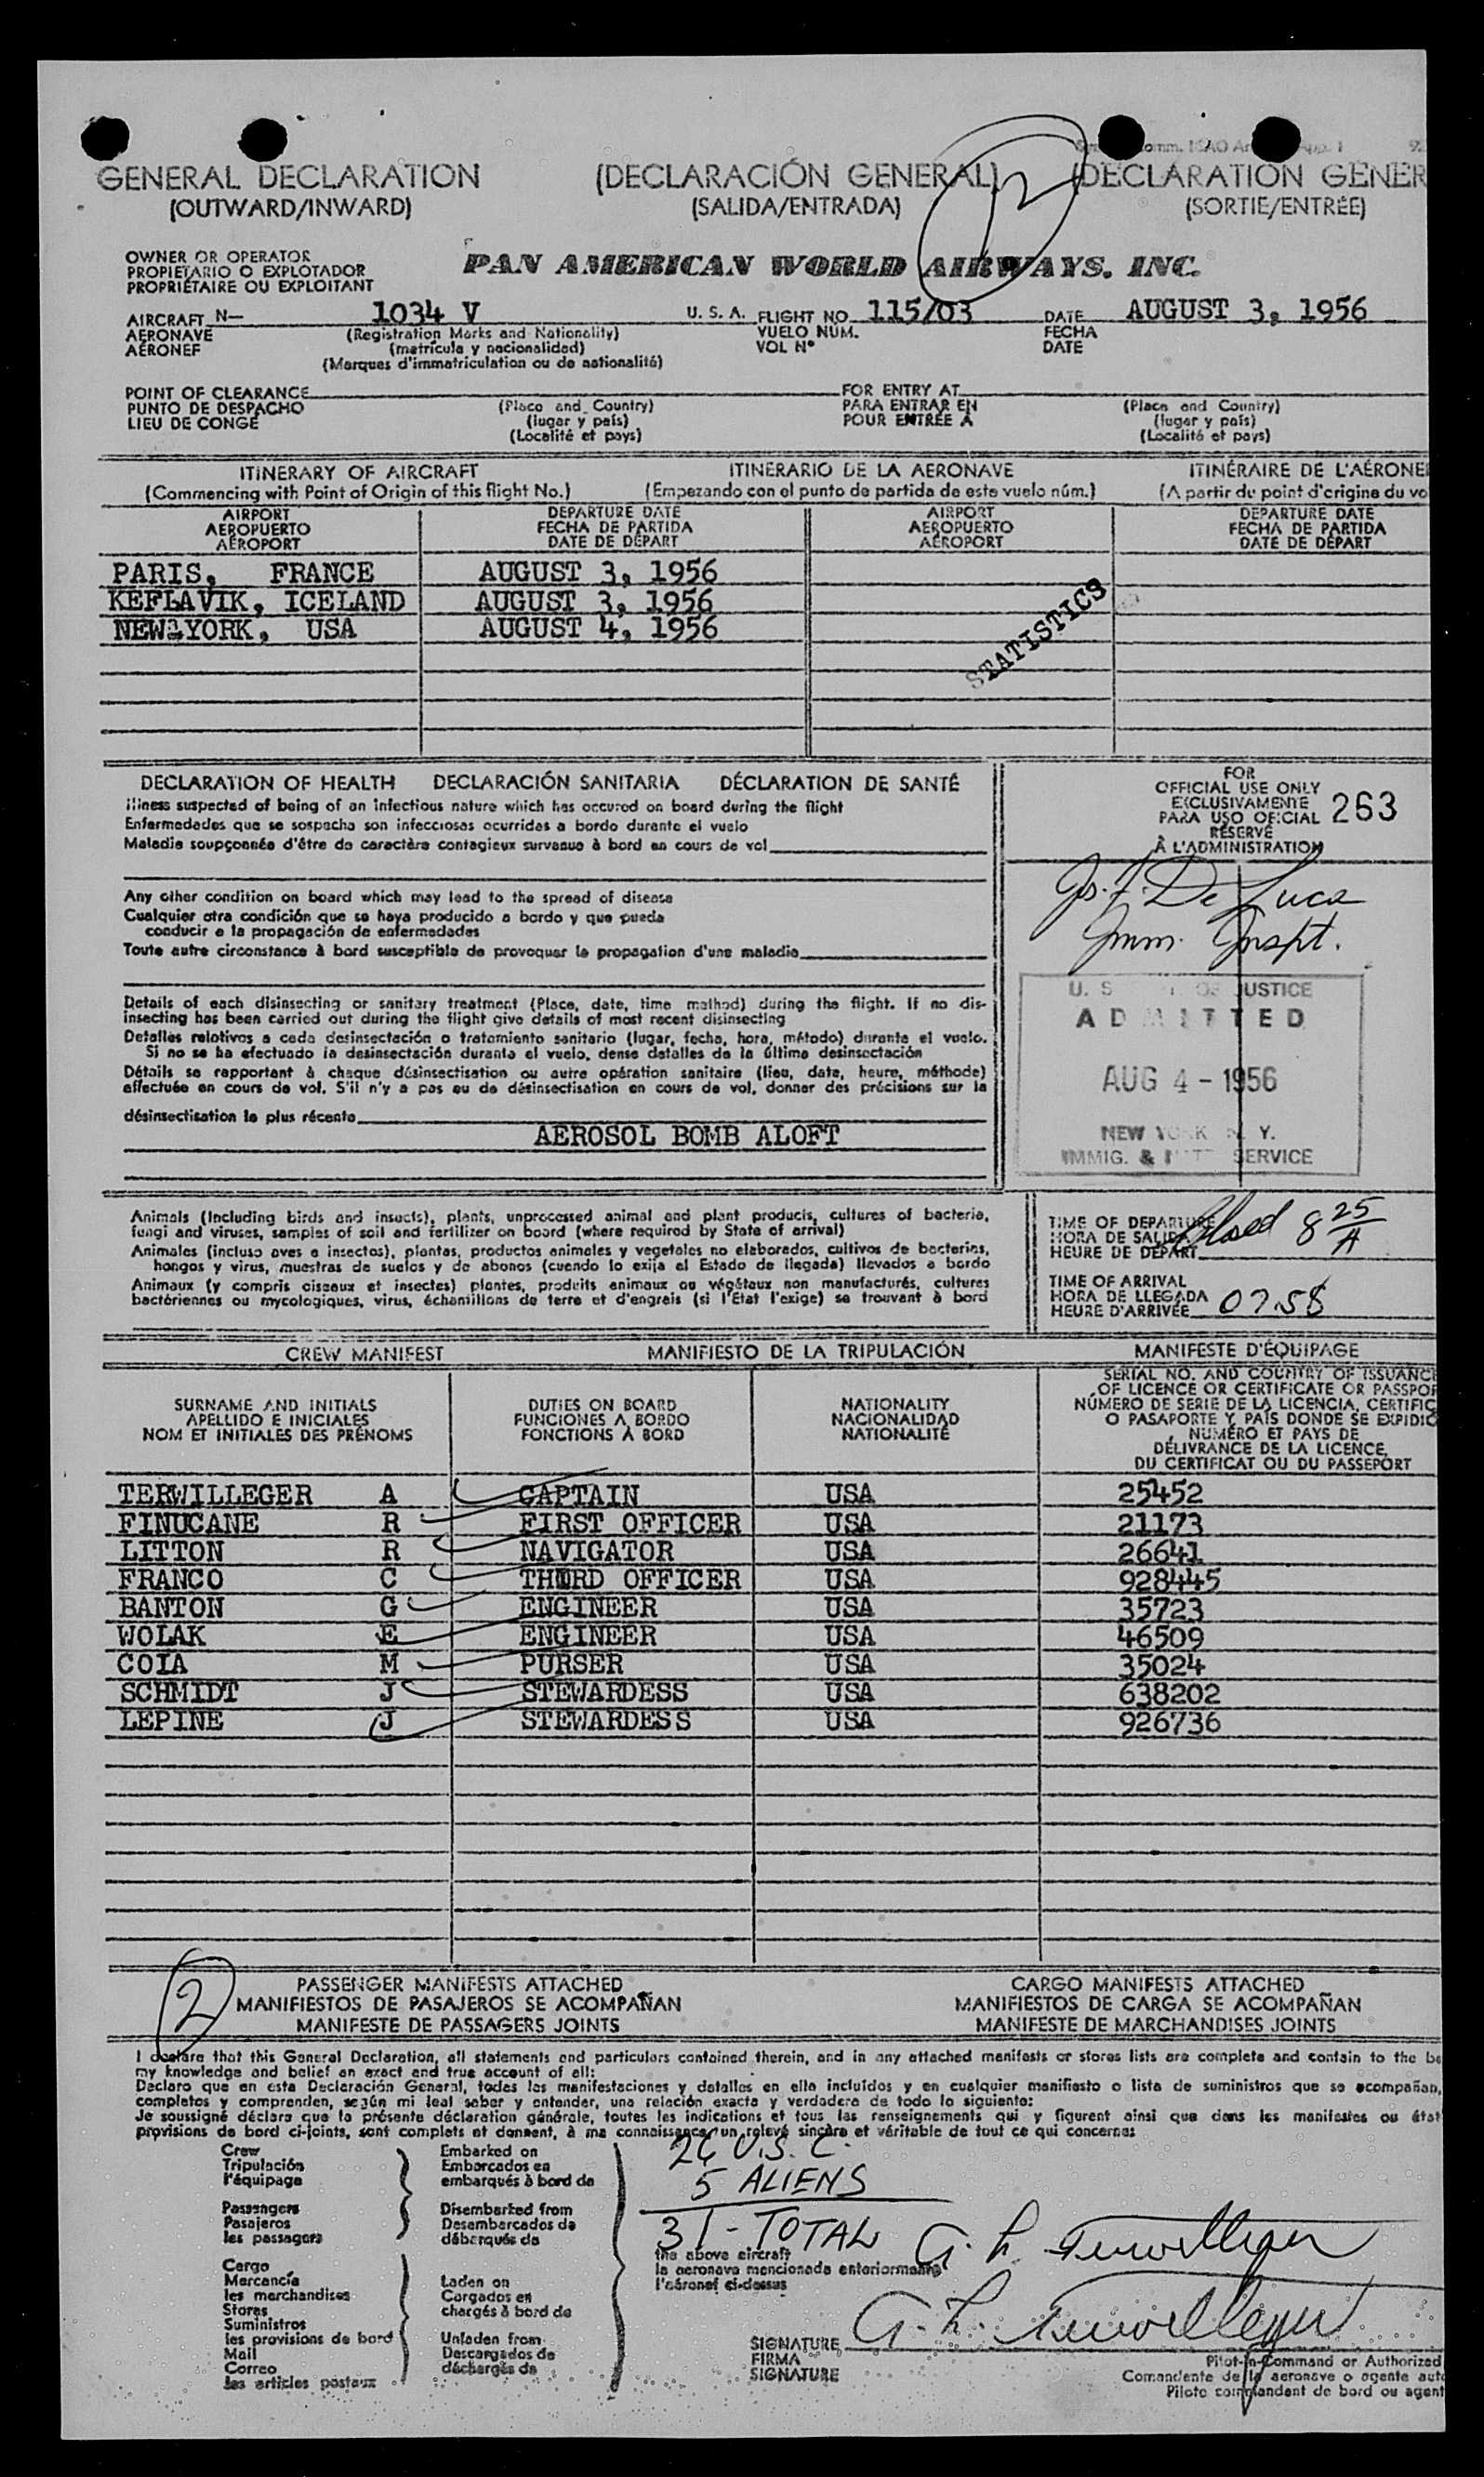 GENERAL DECLARATION (DECLARACIÓN GENERAL) (DECLARATION GENER
(OUTWARD/INWARD) (SALIDA/ENTRADA) (SORTIE/ENTRÉE)
12
OWNER OR OPERATOR
PROPIETARIO O EXPLOTADOR
PROPRIÉTAIRE OU EXPLOITANT
PAN AMERICAN WORLD AIRWAYS, INC.
AIRCRAFT N— 1034 V U. S. A. FLIGHT NO. 115/03 DATE AUGUST 3, 1956
AERONAVE (Registration Marks and Nationality) VUELO NÚM. FECHA
AÉRONEF (matrícula y nacionalidad) VOL Nº DATE
(Marques d'immatriculation ou de nationalité)
POINT OF CLEARANCE FOR ENTRY AT
PUNTO DE DESPACHO (Place and Country) PARA ENTRAR EN (Place and Country)
LIEU DE CONGÉ (lugar y país) POUR ENTRÉE À (lugar y país)
(Localité et pays) (Localité et pays)
ITINERARY OF AIRCRAFT ITINERARIO DE LA AERONAVE ITINÉRAIRE DE L'AÉRONE
(Commencing with Point of Origin of this flight No.) (Empezando con el punto de partida de este vuelo núm.) (A partir du point d'origine du vo
AIRPORT DEPARTURE DATE AIRPORT DEPARTURE DATE
AEROPUERTO FECHA DE PARTIDA AEROPUERTO FECHA DE PARTIDA
AÉROPORT DATE DE DÉPART AÉROPORT DATE DE DÉPART
PARIS, FRANCE AUGUST 3, 1956
KEFLAVIK, ICELAND AUGUST 3, 1956
NEW YORK, USA AUGUST 4, 1956
STATISTICS
DECLARATION OF HEALTH DECLARACIÓN SANITARIA DÉCLARATION DE SANTÉ
Illness suspected of being of an infectious nature which has occured on board during the flight
Enfermedades que se sospecha son infecciosas ocurridas a bordo durante el vuelo
Maladie soupçonnée d'être de caractère contagieux survenue à bord en cours de vol
Any other condition on board which may lead to the spread of disease
Cualquier otra condición que se haya producido a bordo y que pueda
conducir a la propagación de enfermedades
Toute autre circonstance à bord susceptible de provoquer la propagation d'une maladie
Details of each disinsecting or sanitary treatment (Place, date, time method) during the flight. If no dis-
insecting has been carried out during the flight give details of most recent disinsecting
Detalles relativos a cada desinsectación o tratamiento sanitario (lugar, fecha, hora, método) durante el vuelo.
Si no se ha efectuado la desinsectación durante el vuelo, dense detalles de la última desinsectación
Détails se rapportant à chaque désinsectisation ou autre opération sanitaire (lieu, date, heure, méthode)
effectuée en cours de vol. S'il n'y a pas eu de désinsectisation en cours de vol, donner des précisions sur la
désinsectisation la plus récente
AEROSOL BOMB ALOFT
FOR
OFFICIAL USE ONLY
EXCLUSIVAMENTE
PARA USO OFICIAL
RÉSERVÉ
À L'ADMINISTRATION
263
Js. F. De Luca
Imm. Inspt.
U. S. OF JUSTICE
ADMITTED
AUG 4 - 1956
NEW YORK N. Y.
IMMIG. & NAT SERVICE
Animals (Including birds and insects), plants, unprocessed animal and plant products, cultures of bacteria,
fungi and viruses, samples of soil and fertilizer on board (where required by State of arrival)
Animales (incluso aves e insectos), plantas, productos animales y vegetales no elaborados, cultivos de bacterias,
hongos y virus, muestras de suelos y de abonos (cuando lo exija el Estado de llegada) llevados a bordo
Animaux (y compris oiseaux et insectes) plantes, produits animaux ou végétaux non manufacturés, cultures
bactériennes ou mycologiques, virus, échantillons de terre et d'engrais (si l'État l'exige) se trouvant à bord
TIME OF DEPARTURE
HORA DE SALIDA
HEURE DE DÉPART
Closed 8 25/A
TIME OF ARRIVAL
HORA DE LLEGADA
HEURE D'ARRIVÉE 07.58
CREW MANIFEST MANIFIESTO DE LA TRIPULACIÓN MANIFESTE D'ÉQUIPAGE
SURNAME AND INITIALS
APELLIDO E INICIALES
NOM ET INITIALES DES PRÉNOMS
DUTIES ON BOARD
FUNCIONES A BORDO
FONCTIONS À BORD
NATIONALITY
NACIONALIDAD
NATIONALITÉ
SERIAL NO. AND COUNTRY OF ISSUANCE
OF LICENCE OR CERTIFICATE OR PASSPOR
NÚMERO DE SERIE DE LA LICENCIA, CERTIFIC
O PASAPORTE Y PAÍS DONDE SE EXPIDIÓ
NUMÉRO ET PAYS DE
DÉLIVRANCE DE LA LICENCE,
DU CERTIFICAT OU DU PASSEPORT
TERWILLEGER A CAPTAIN USA 25452
FINUCANE R FIRST OFFICER USA 21173
LITTON R NAVIGATOR USA 26641
FRANCO C THIRD OFFICER USA 928445
BANTON G ENGINEER USA 35723
WOLAK E ENGINEER USA 46509
COIA M PURSER USA 35024
SCHMIDT J STEWARDESS USA 638202
LEPINE J STEWARDESS USA 926736
2
PASSENGER MANIFESTS ATTACHED CARGO MANIFESTS ATTACHED
MANIFIESTOS DE PASAJEROS SE ACOMPAÑAN MANIFIESTOS DE CARGA SE ACOMPAÑAN
MANIFESTE DE PASSAGERS JOINTS MANIFESTE DE MARCHANDISES JOINTS
I declare that this General Declaration, all statements and particulars contained therein, and in any attached manifests or stores lists are complete and contain to the be
my knowledge and belief an exact and true account of all:
Declaro que en esta Declaración General, todas las manifestaciones y detalles en ella incluídos y en cualquier manifiesto o lista de suministros que se acompañan,
completos y comprenden, según mi leal saber y entender, una relación exacta y verdadera de todo lo siguiente:
Je soussigné déclare que la présente déclaration générale, toutes les indications et tous les renseignements qui y figurent ainsi que dans les manifestes ou état
provisions de bord ci-joints, sont complets et donnent, à ma connaissance, un relevé sincère et véritable de tout ce qui concerne:
Crew
Tripulación
l'équipage
Passengers
Pasajeros
les passagers
Embarked on
Embarcados en
embarqués à bord de
Disembarked from
Desembarcados de
débarqués de
26 U.S.C.
5 ALIENS
31 - TOTAL
the above aircraft
la aeronave mencionada anteriormente
l'aéronef ci-dessus
A. L. Terwilleger
Cargo
Mercancía
les marchandises
Stores
Suministros
les provisions de bord
Mail
Correo
les articles postaux
Laden on
Cargados en
chargés à bord de
Unladen from
Descargados de
déchargés de
SIGNATURE
FIRMA
SIGNATURE
A. L. Terwilleger
Pilot-in-Command or Authorized
Comandante de la aeronave o agente auto
Pilote commandant de bord ou agent